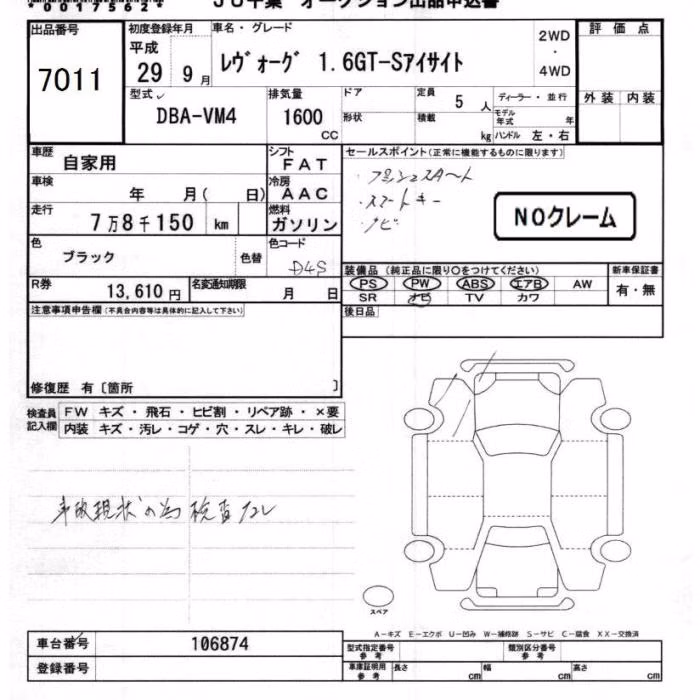 *00175624*
JU千葉 オークション出品申込書
出品番号 7011
初度登録年月 平成 29 9月
車名・グレード レヴォーグ 1.6GT-Sアイサイト
2WD ・ 4WD
評価点
外装 内装
型式 DBA-VM4
排気量 1600 CC
ドア 形状
定員 5 人
積載 kg
ディーラー・並行
モデル年式 年
ハンドル 左・右
車歴 自家用
シフト FAT
車検 年 月( 日)
冷房 AAC
走行 7万8千150 km
燃料 ガソリン
色 ブラック 色替
色コード D4S
R券 13,610円
名変通知期限 月 日
セールスポイント(正常に機能するものに限ります)
・プッシュスタート
・スマートキー
・ナビ
NOクレーム
装備品(純正品に限り○をつけてください)
PS PW ABS エアB AW
SR ナビ TV カワ
新車保証書 有・無
後日品
注意事項申告欄(不具合内容等は具体的に記入して下さい)
修復歴 有〔箇所 〕
検査員記入欄
FW キズ・飛石・ヒビ割・リペア跡・×要
内装 キズ・汚レ・コゲ・穴・スレ・キレ・破レ
事故現状の為 検査なし
スペア
A－キズ E－エクボ U－凹み W－補修跡 S－サビ C－腐食 XX－交換済
車台番号 106874
登録番号
型式指定番号 参考
類別区分番号 参考
車庫証明用 参考 長さ cm 幅 cm 高さ cm